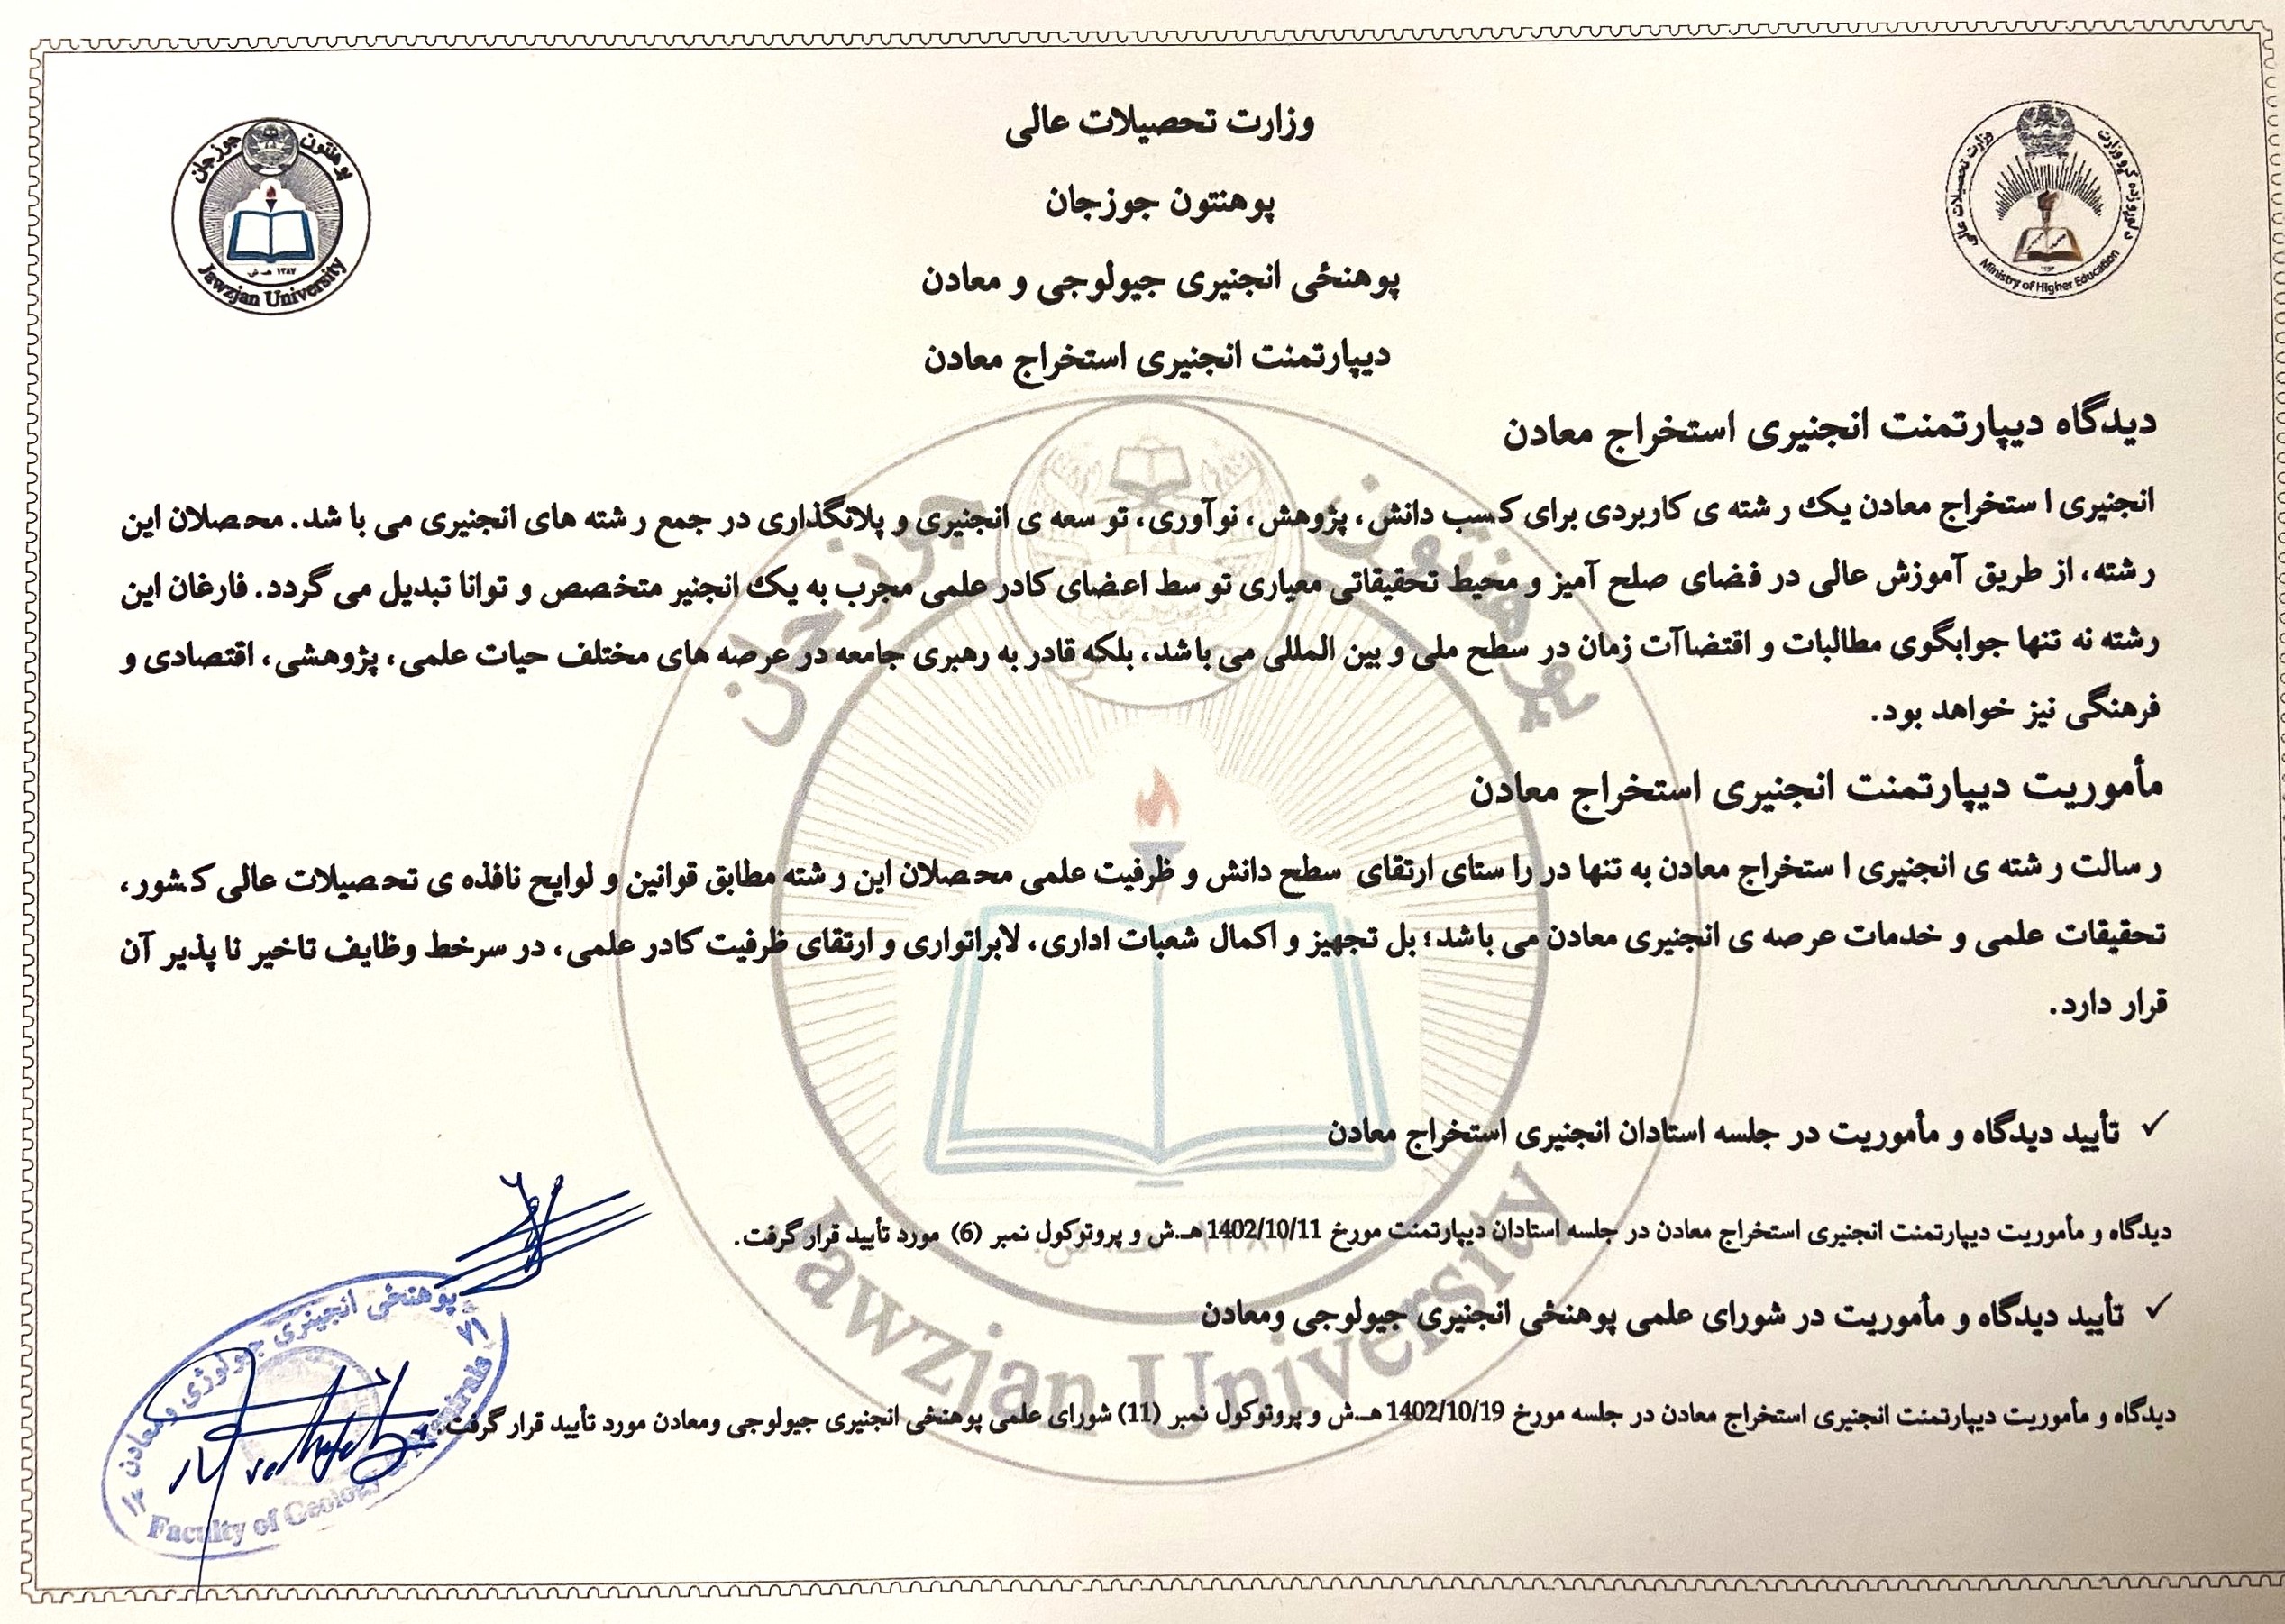 وزارت تحصیلات عالی
پوهنتون جوزجان
پوهنځی انجنیری جیولوجی و معادن
دیپارتمنت انجنیری استخراج معادن
وزارت تحصیلات عالی
Ministry of Higher Education
پوهنتون جوزجان
۱۳۸۷ هـ ش
Jawzjan University
دیدگاه دیپارتمنت انجنیری استخراج معادن
انجنیری استخراج معادن یک رشته ی کاربردی برای کسب دانش، پژوهش، نوآوری، توسعه ی انجنیری و پلانگذاری در جمع رشته های انجنیری می باشد. محصلان این
رشته، از طریق آموزش عالی در فضای صلح آمیز و محیط تحقیقاتی معیاری توسط اعضای کادر علمی مجرب به یک انجنیر متخصص و توانا تبدیل می گردد. فارغان این
رشته نه تنها جوابگوی مطالبات و اقتضاآت زمان در سطح ملی و بین المللی می باشد، بلکه قادر به رهبری جامعه در عرصه های مختلف حیات علمی، پژوهشی، اقتصادی و
فرهنگی نیز خواهد بود.
مأموریت دیپارتمنت انجنیری استخراج معادن
رسالت رشته ی انجنیری استخراج معادن به تنها در راستای ارتقای سطح دانش و ظرفیت علمی محصلان این رشته مطابق قوانین و لوایح نافذه ی تحصیلات عالی کشور،
تحقیقات علمی و خدمات عرصه ی انجنیری معادن می باشد؛ بل تجهیز و اکمال شعبات اداری، لابراتواری و ارتقای ظرفیت کادر علمی، در سرخط وظایف تاخیر نا پذیر آن
قرار دارد.
✓ تأیید دیدگاه و مأموریت در جلسه استادان انجنیری استخراج معادن
دیدگاه و مأموریت دیپارتمنت انجنیری استخراج معادن در جلسه استادان دیپارتمنت مورخ 1402/10/11 هـ.ش و پروتوکول نمبر (6) مورد تأیید قرار گرفت.
✓ تأیید دیدگاه و مأموریت در شورای علمی پوهنځی انجنیری جیولوجی ومعادن
دیدگاه و مأموریت دیپارتمنت انجنیری استخراج معادن در جلسه مورخ 1402/10/19 هـ.ش و پروتوکول نمبر (11) شورای علمی پوهنځی انجنیری جیولوجی ومعادن مورد تأیید قرار گرفت.
پوهنځی انجینری جیولوژی و معادن
Faculty of Geology
پوهنتون جوزجان
Jawzjan University